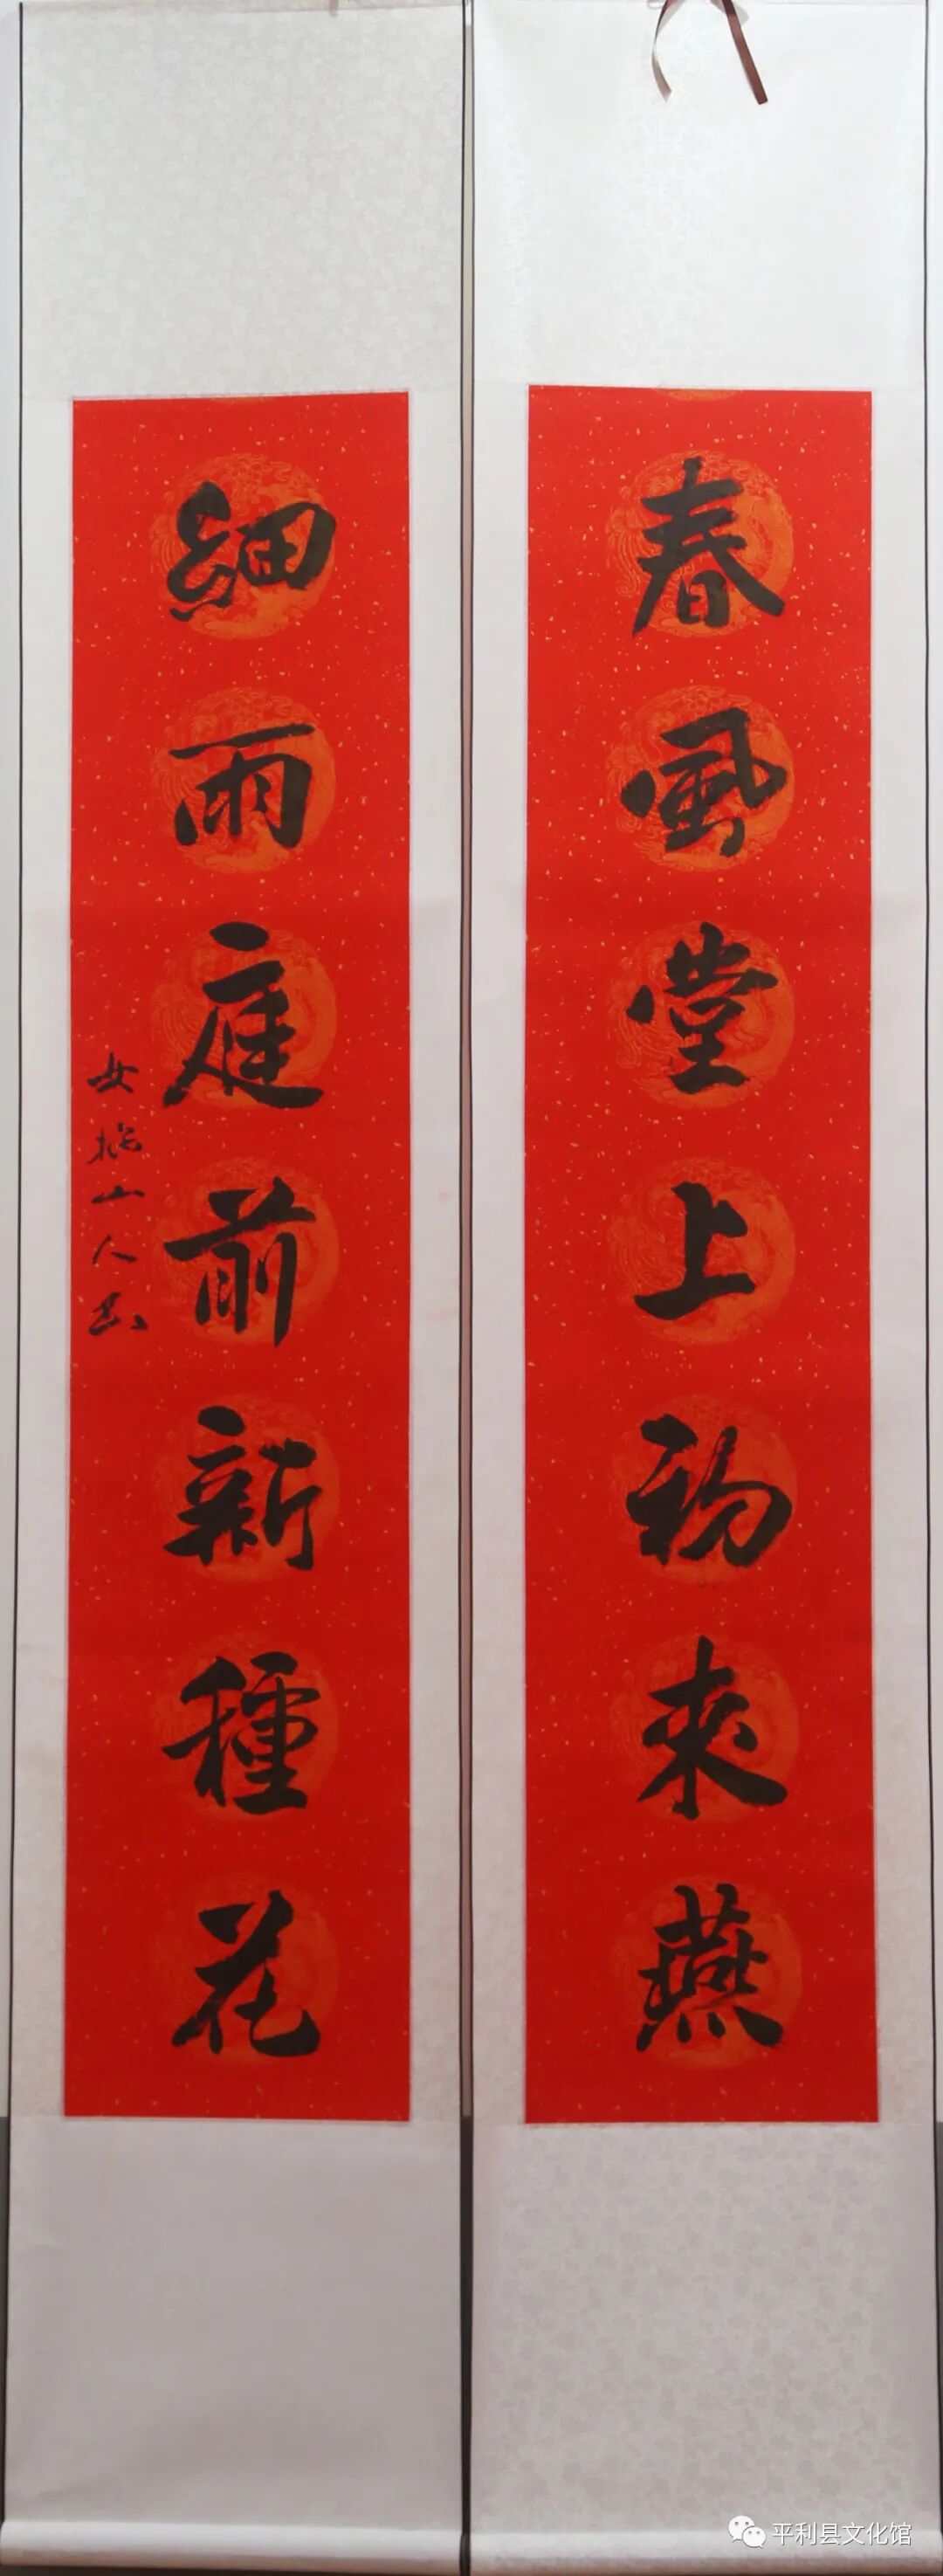 春風堂上初來燕
細雨庭前新種花
女媧山人書
平利县文化馆